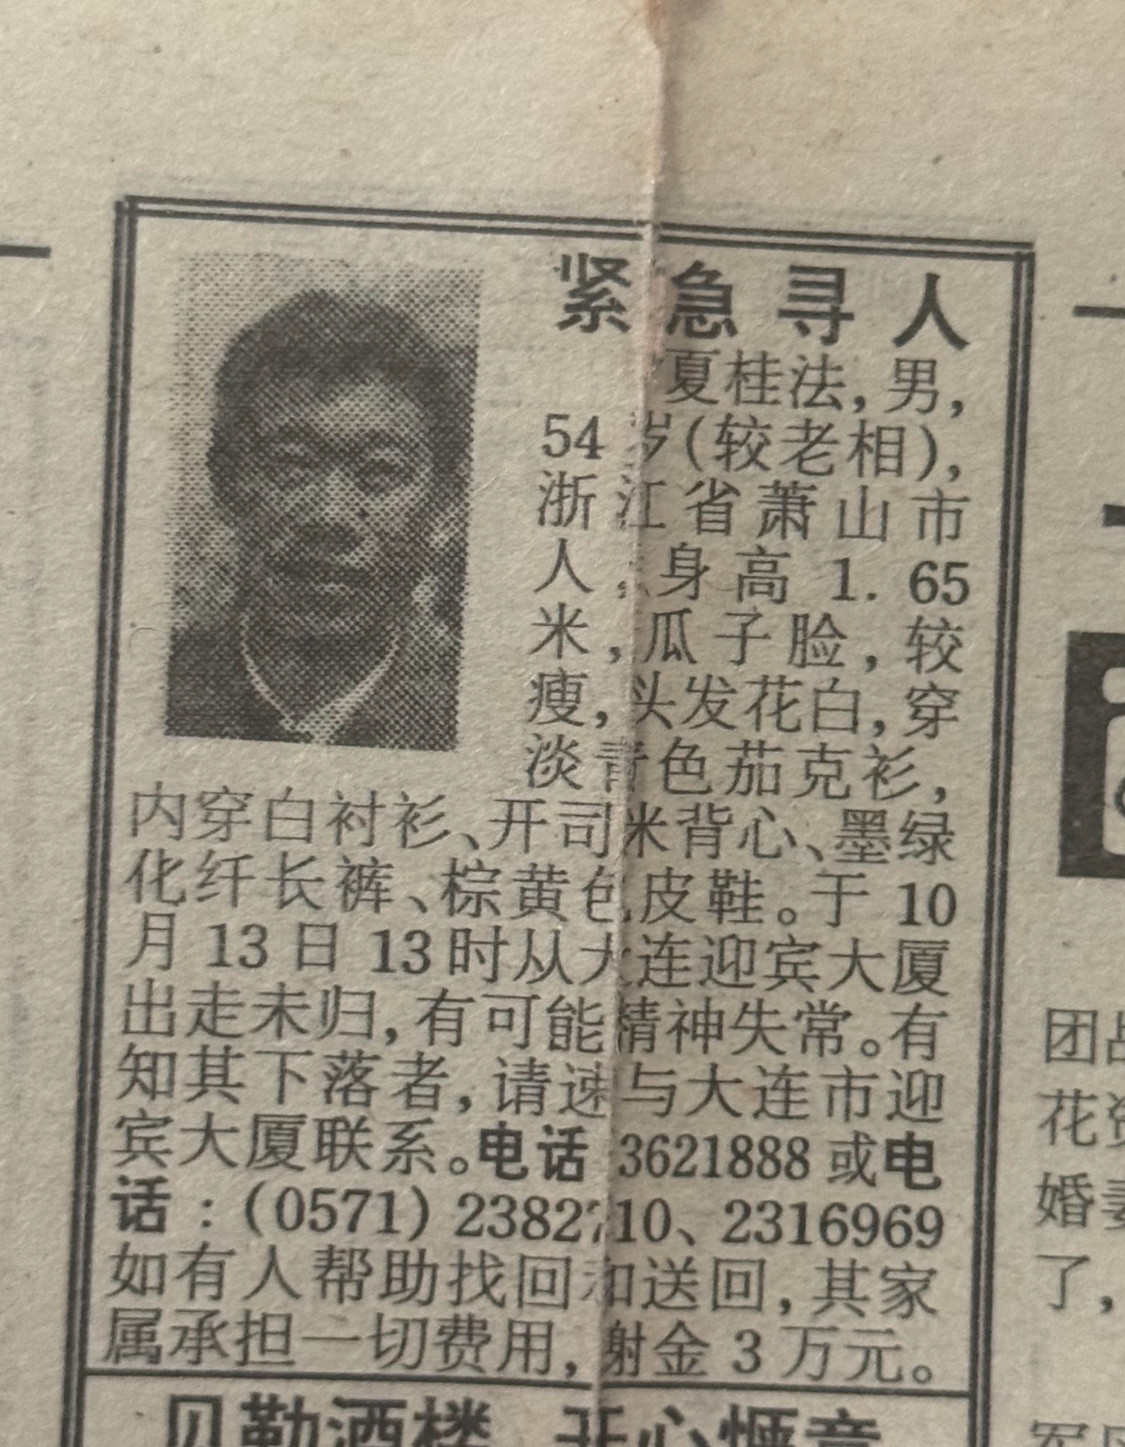 紧急寻人
夏桂法,男,
54岁(较老相),
浙江省萧山市
人,身高1.65
米,瓜子脸,较
瘦,头发花白,穿
淡青色茄克衫,
内穿白衬衫、开司米背心、墨绿
化纤长裤、棕黄色皮鞋。于10
月13日13时从大连迎宾大厦
出走未归,有可能精神失常。有
知其下落者,请速与大连市迎
宾大厦联系。电话 3621888或电
话:(0571)2382710、2316969
如有人帮助找回和送回,其家
属承担一切费用,谢金3万元。
贝勒酒楼 开心惬意
团
花
婚妻
了,